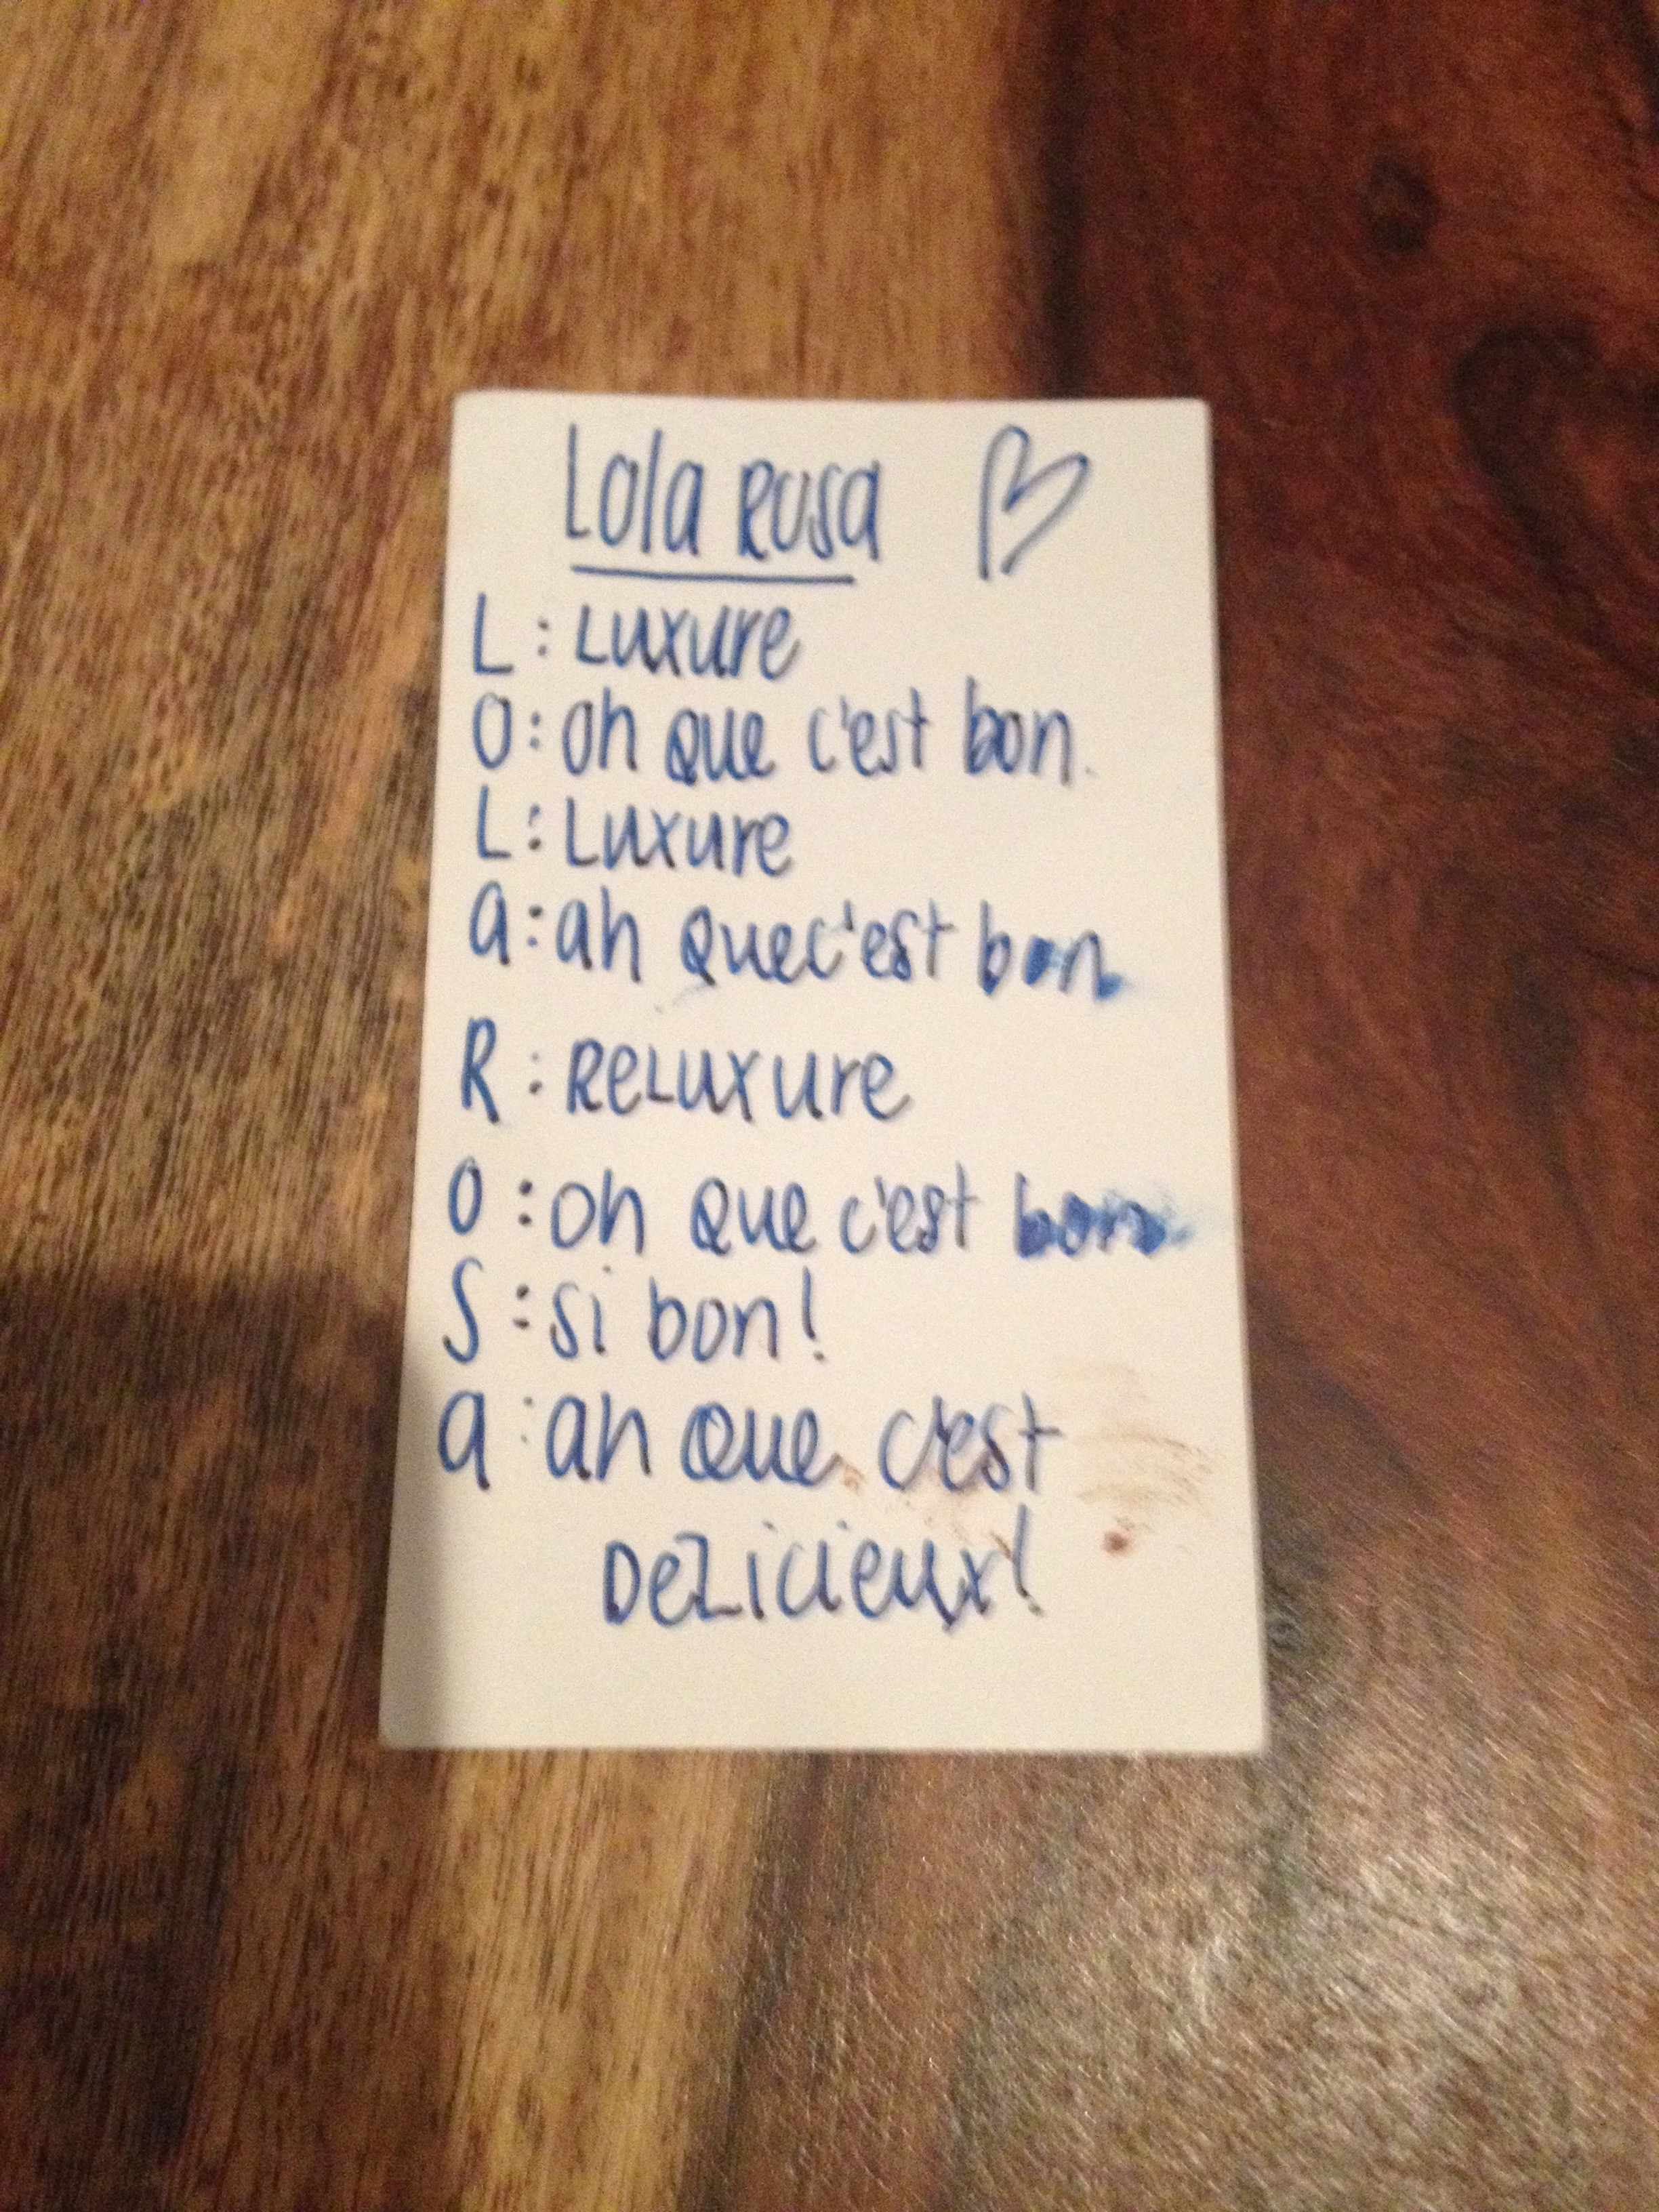 Lola Rosa
L : Luxure
O : oh que c'est bon.
L : Luxure
a : ah que c'est bon
R : ReLuxure
O : oh que c'est bon
S : si bon !
a : ah que c'est
DeLicieux !